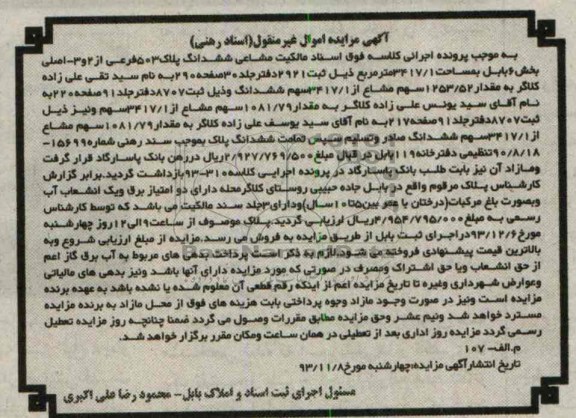 آگهی مزایده اموال غیر منقول(اسناد رهنی)
به موجب پرونده اجرائی کلاسه فوق اسناد مالکیت مشاعی ششدانگ پلاک503فرعی از2و3-اصلی
بخش6بابل بمساحت3417/1مترمربع ذیل ثبت2921دفترجلد30صفحه290به نام سید تقی علی زاده
کلاگر به مقدار1253/52سهم مشاع از3417/1سهم ششدانگ وذیل ثبت8707دفترجلد91صفحه220به
نام آقای سید یونس علی زاده کلاگر به مقدار1081/79سهم مشاع از3417/1سهم ونیز ذیل
ثبت8707دفترجلد91صفحه217به نام آقای سید یوسف علی زاده کلاگر به مقدار1081/79سهم مشاع
از3417/1سهم ششدانگ صادر وتسلیم سپس تمامت ششدانگ پلاک بموجب سند رهنی شماره15699-
90/8/18تنظیمی دفترخانه119بابل در قبال مبلغ2/927/769/500ریال دررهن بانک پاسارگاد قرار گرفت
ومازاد آن نیز بابت طلب بانک پاسارگاد در پرونده اجرایی کلاسه310-93بازداشت گردید.برابر گزارش
کارشناس پلاک مرقوم واقع در بابل جاده حبیبی روستای کلاگرمحله دارای دو امتیاز برق ویک انشعاب آب
وبصورت باغ مرکبات(درختان با عمر بین5تا10سال)ودارای3جلد سند مالکیت می باشد که توسط کارشناس
رسمی به مبلغ4/954/795/000ریال ارزیابی گردید.پلاک موصوف از ساعت9الی12روز چهارشنبه
مورخ93/12/6دراجرای ثبت بابل از طریق مزایده به فروش می رسد.مزایده از مبلغ ارزیابی شروع وبه
بالاترین قیمت پیشنهادی فروخته می شود.لازم به ذکر است پرداخت بدهی های مربوط به آب برق گاز اعم
از حق انشعاب ویا حق اشتراک ومصرف در صورتی که مورد مزایده دارای آنها باشد ونیز بدهی های مالیاتی
وعوارض شهرداری وغیره تا تاریخ مزایده اعم از اینکه رقم قطعی آن معلوم شده یا نشده باشد به عهده برنده
مزایده است ونیز در صورت وجود مازاد وجوه پرداختی بابت هزینه های فوق از محل مازاد به برنده مزایده
مسترد خواهد شد ونیم عشر وحق مزایده مطابق مقررات وصول می گردد ضمنا چنانچه روز مزایده تعطیل
رسمی گردد مزایده روز اداری بعد از تعطیلی در همان ساعت ومکان مقرر برگزار خواهد شد.
م.الف-107
تاریخ انتشارآگهی مزایده:چهارشنبه مورخ93/11/8
مسئول اجرای ثبت اسناد و املاک بابل- محمود رضا علی اکبری